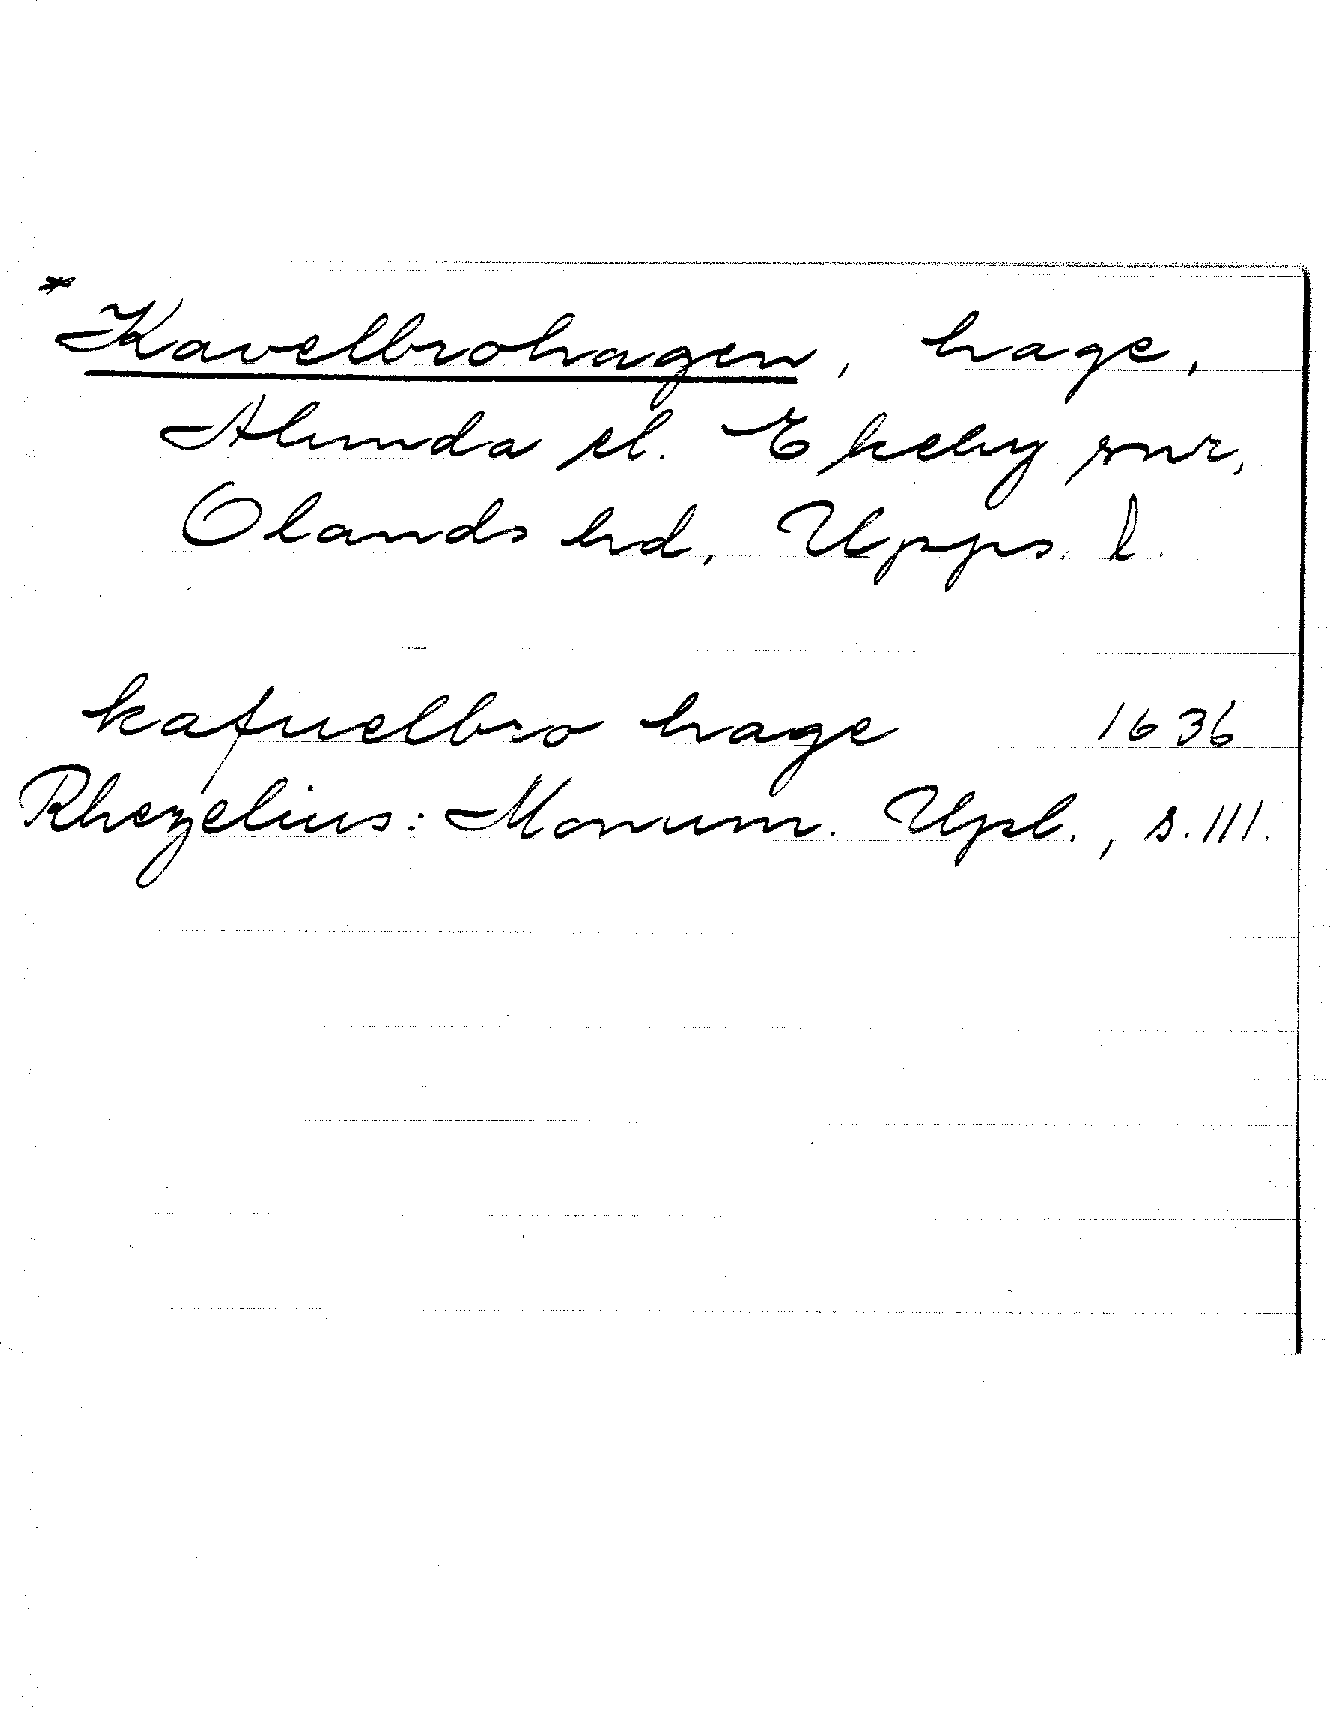 *
Kavelbrohagen, hage,
Alunda el. Ekeby snr,
Olands hd, Upps. l.
kafuelbro hage 1636
Rhezelius: Monum. Upl., s. 111.